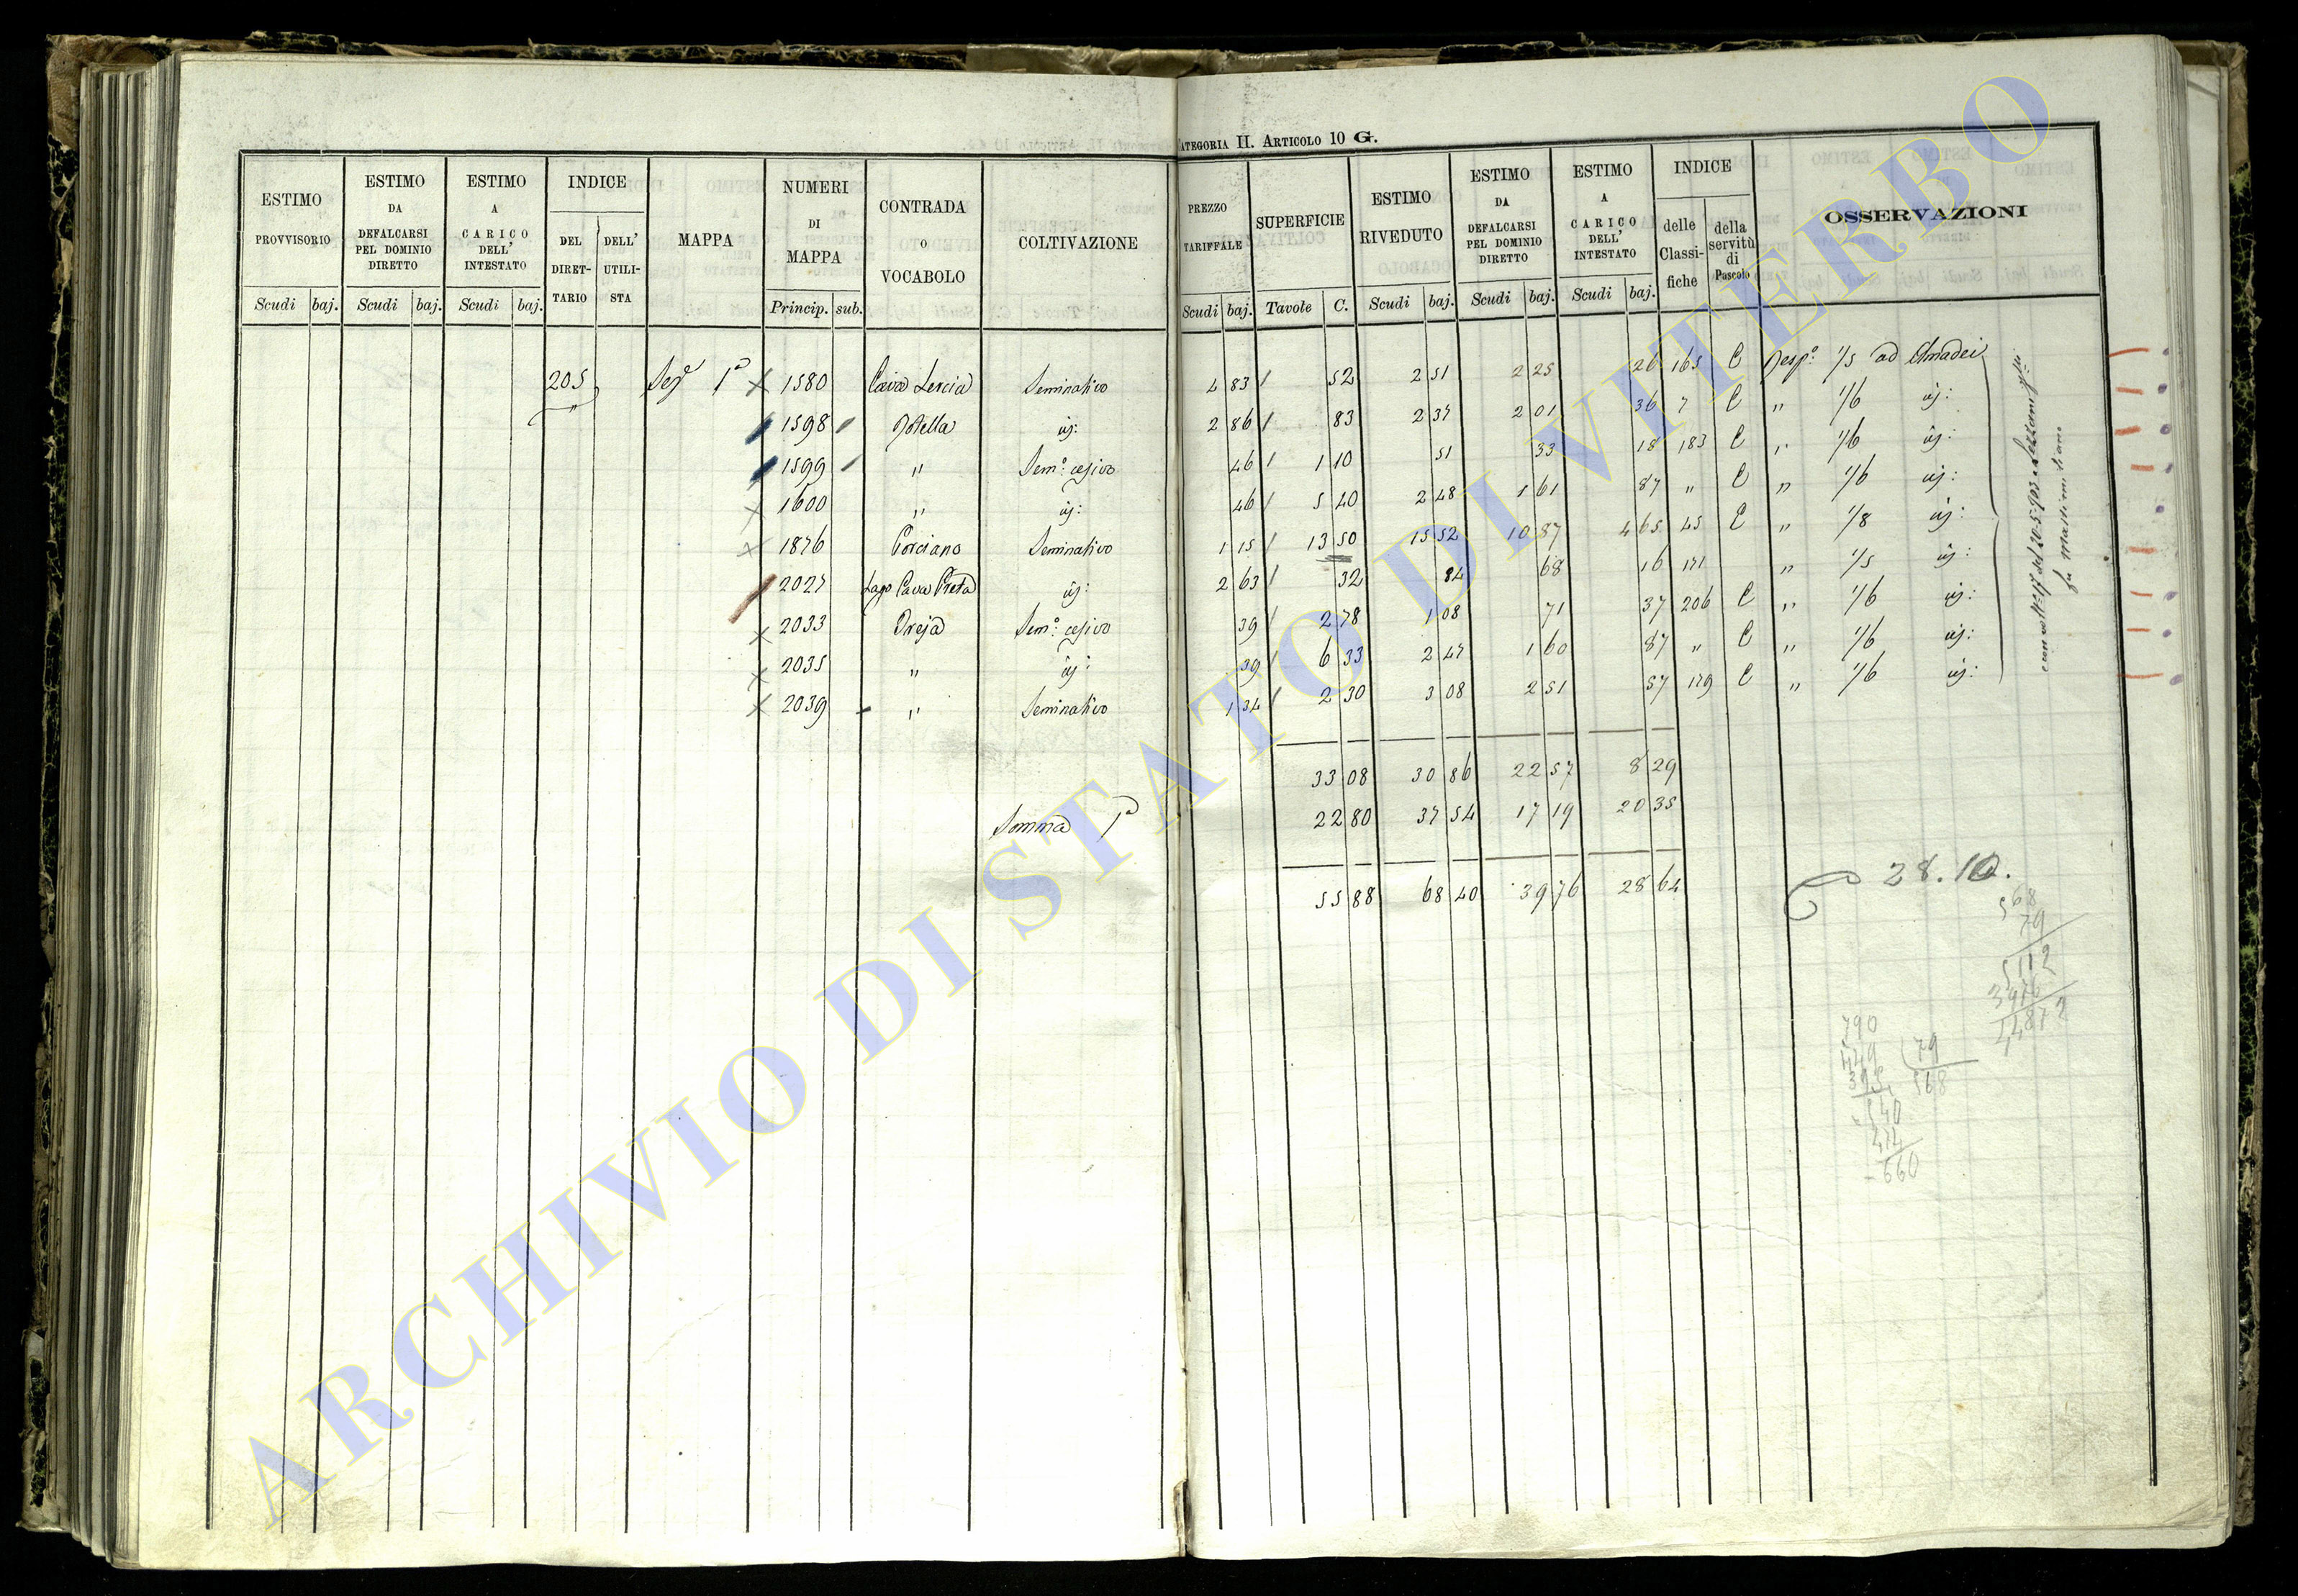 CATEGORIA II. ARTICOLO 10 G.
ESTIMO PROVVISORIO
ESTIMO DA DEFALCARSI PEL DOMINIO DIRETTO
ESTIMO A CARICO DELL' INTESTATO
INDICE
DEL DIRET- TARIO
DELL' UTILI- STA
MAPPA
NUMERI DI MAPPA
CONTRADA O VOCABOLO
COLTIVAZIONE
PREZZO TARIFFALE
SUPERFICIE
ESTIMO RIVEDUTO
ESTIMO DA DEFALCARSI PEL DOMINIO DIRETTO
ESTIMO A CARICO DELL' INTESTATO
INDICE
delle Classi- fiche
della servitù di Pascolo
OSSERVAZIONI
Scudi baj. Scudi baj. Scudi baj. Princip. sub. Scudi baj. Tavole C. Scudi baj. Scudi baj. Scudi baj.
205 Sez 1ª 1580 Seminativo 4 83 52 2 51 2 25 26 165 C Resp: 1/5 ad Amadei
" 1598 2 86 83 2 37 2 01 36 7 C " 1/6
1599 " Sem: cesivo 46 1 10 51 33 18 183 C " 1/6
1600 " 46 5 40 2 48 1 61 87 " C " 1/6
1876 Porciano Seminativo 1 15 13 50 15 52 10 87 4 65 45 C " 1/8
2027 Lago Cava 2 63 32 84 68 16 171 " 1/5
2033 Sem: cesivo 39 2 78 1 08 71 37 206 C " 1/6
2035 " 39 6 33 2 47 1 60 87 " C " 1/6
2039 " Seminativo 1 34 2 30 3 08 2 51 57 179 C " 1/6
33 08 30 86 22 57 8 29
Somma 1ª 22 80 37 54 17 19 20 35
55 88 68 40 39 76 28 64
28.10.
568
79
5112
3976
44872
790
449 79
395 568
540
474
660
ARCHIVIO DI STATO DI VITERBO